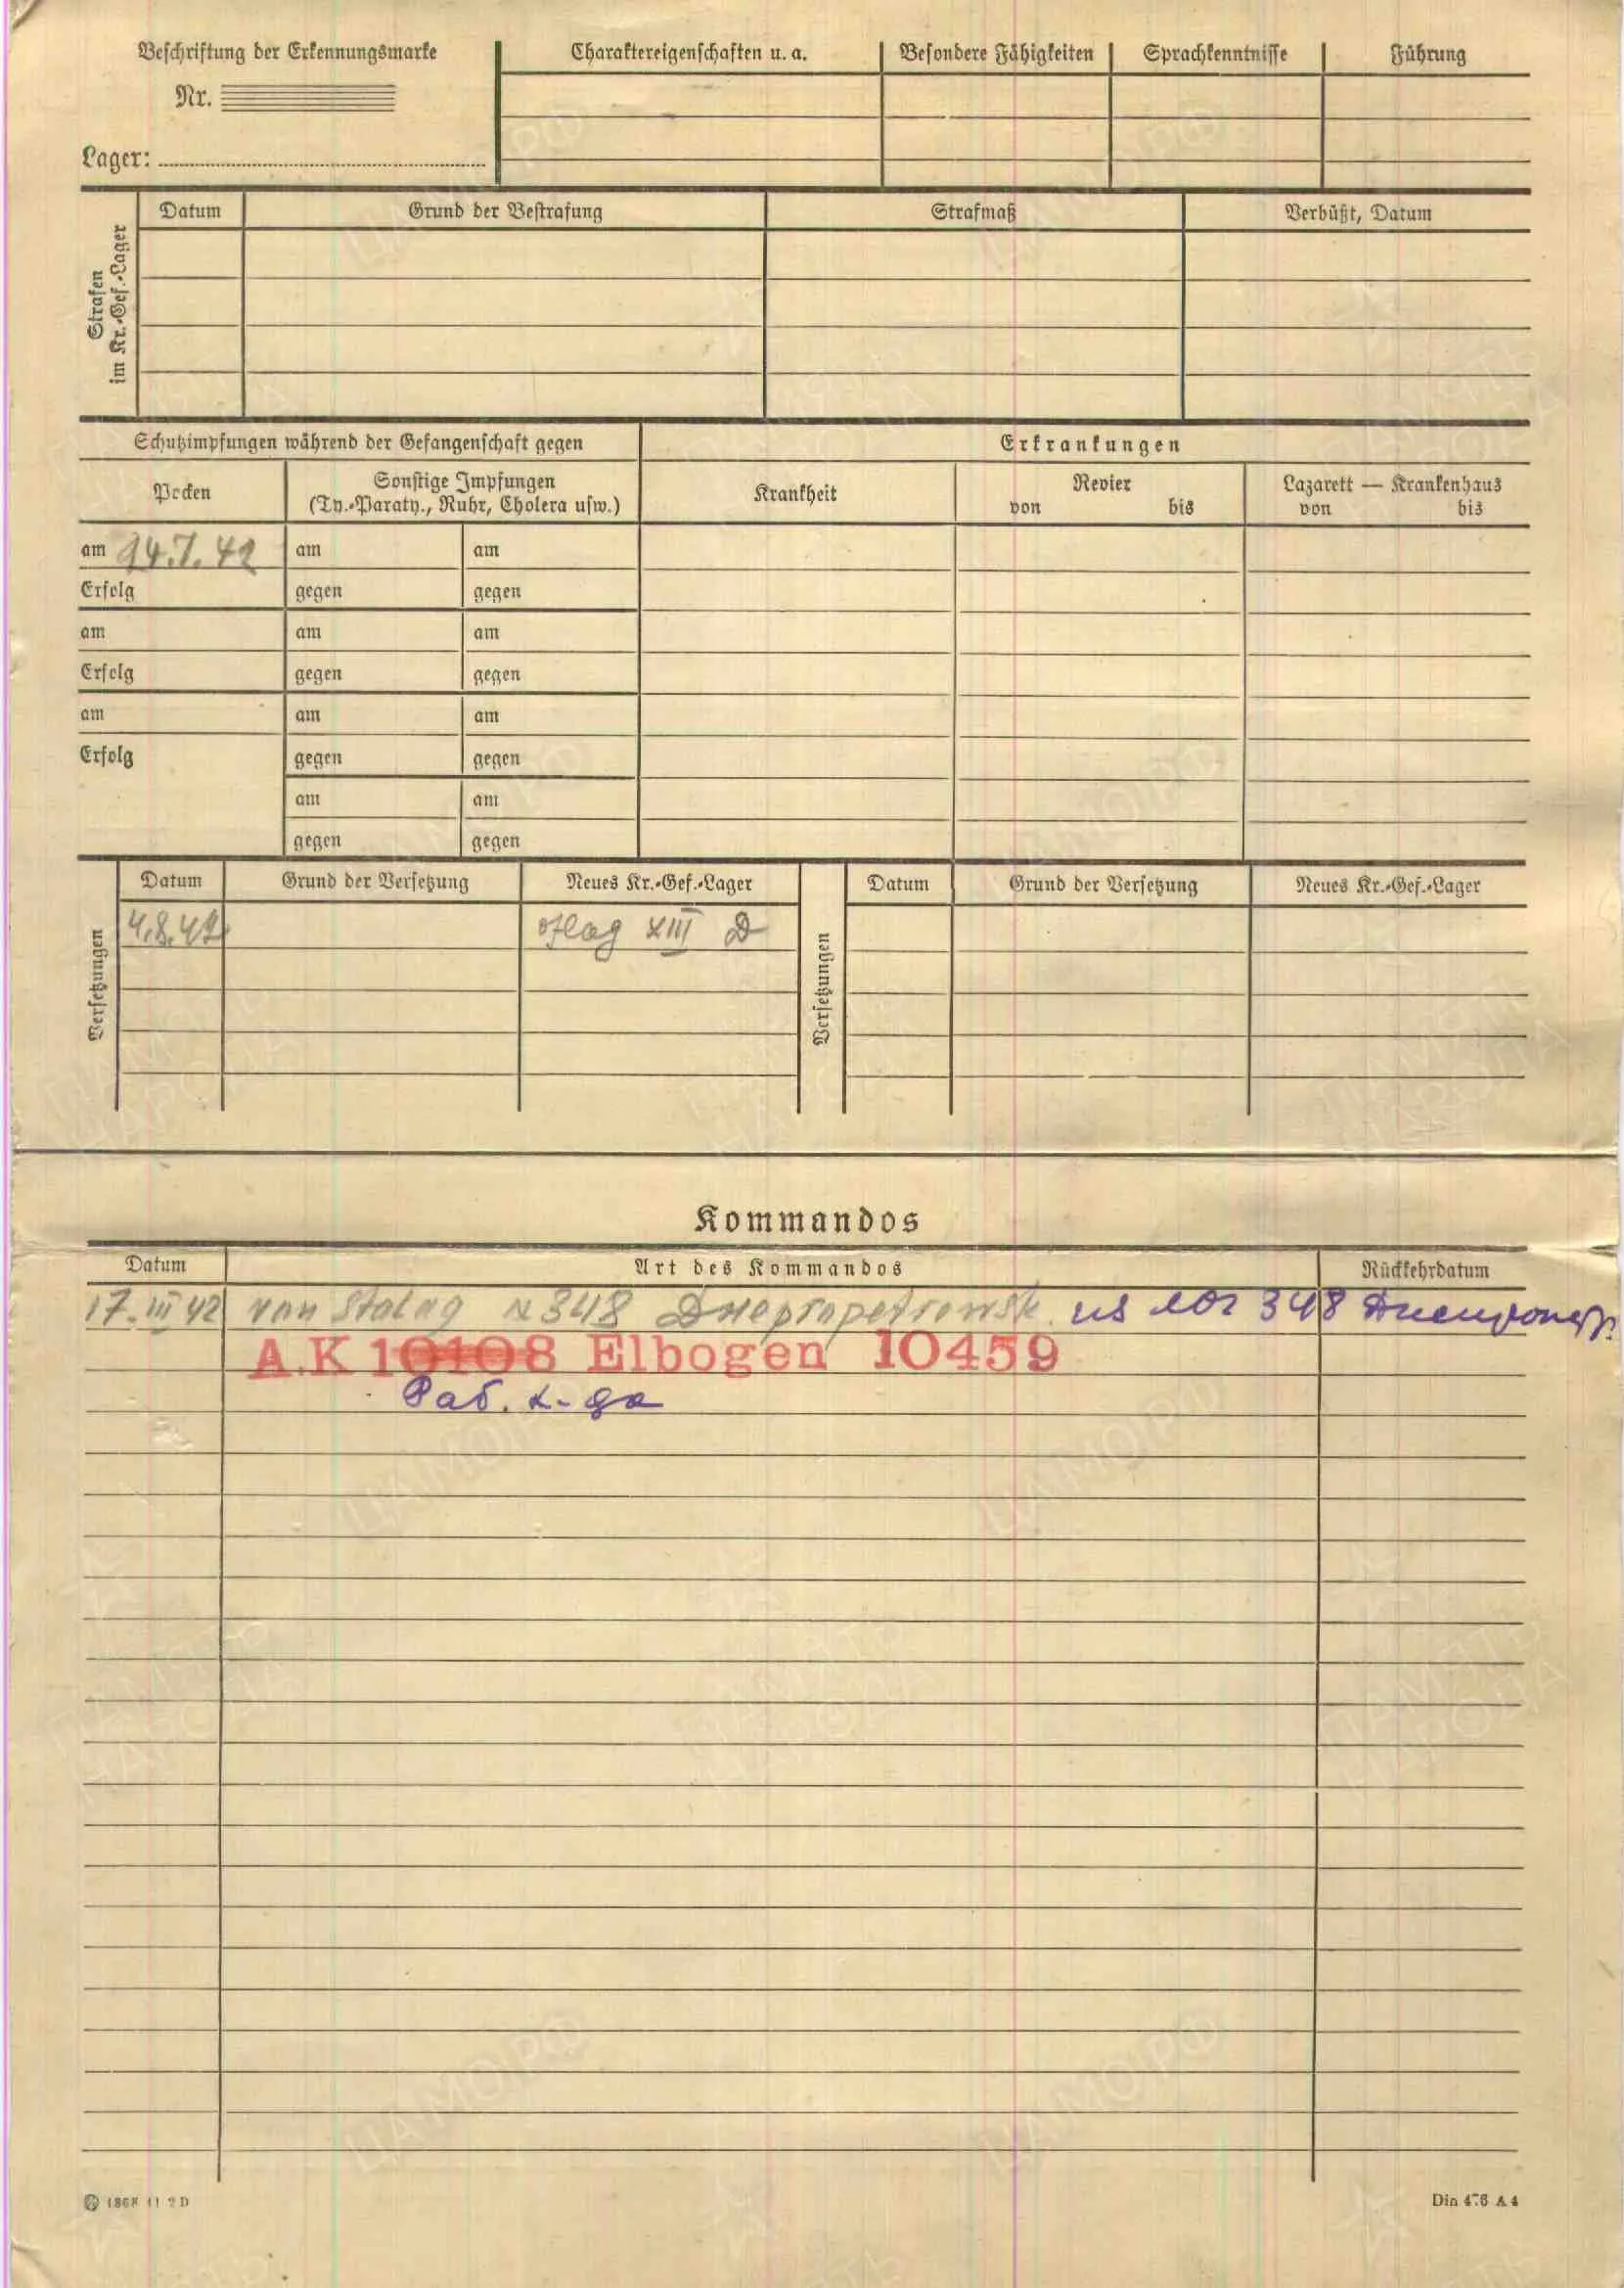 Beschriftung der Erkennungsmarke
Nr.
Lager:
Charaktereigenschaften u. a.
Besondere Fähigkeiten
Sprachkenntnisse
Führung
Strafen
im Kr.-Gef.-Lager
Datum
Grund der Bestrafung
Strafmaß
Verbüßt, Datum
Schutzimpfungen während der Gefangenschaft gegen
Erkrankungen
Pocken
Sonstige Impfungen
(Ty.-Paraty., Ruhr, Cholera usw.)
Krankheit
Revier
von bis
Lazarett — Krankenhaus
von bis
am 14.7.42 am am
Erfolg gegen gegen
am am am
Erfolg gegen gegen
am am am
Erfolg gegen gegen
am am
gegen gegen
Versetzungen
Datum Grund der Versetzung Neues Kr.-Gef.-Lager
4.8.42 oflag XIII D
Versetzungen
Datum Grund der Versetzung Neues Kr.-Gef.-Lager
Kommandos
Datum Art des Kommandos Rückkehrdatum
17.III 42 van Stalag N 348 Dnepropetrowsk из лог 348 Днепропетр.
A.K 10108 Elbogen 10459
Раб. к-да
Din 476 A 4